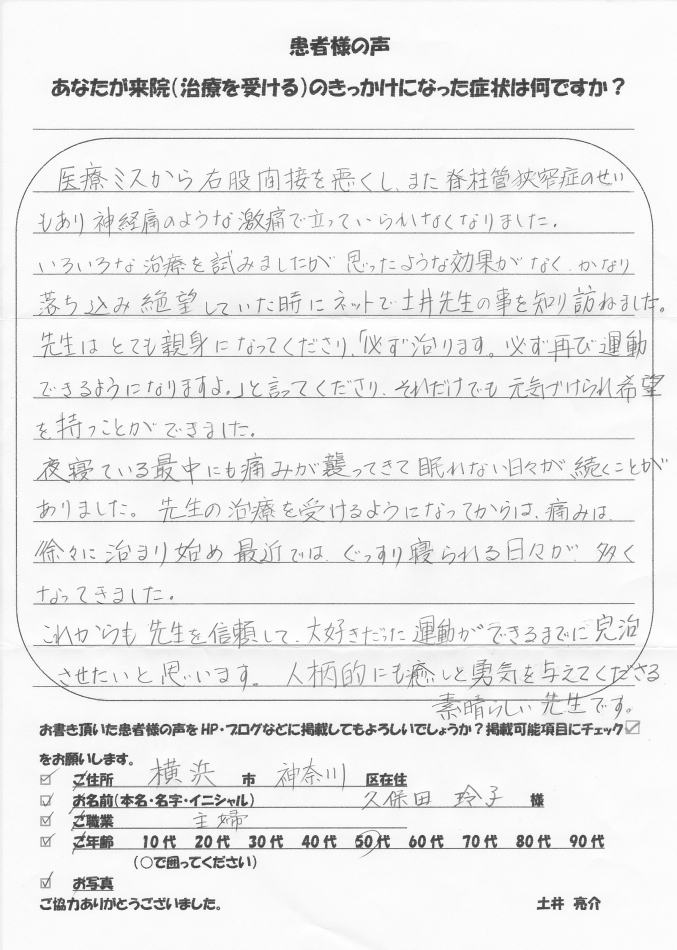 患者様の声
あなたが来院(治療を受ける)のきっかけになった症状は何ですか?
医療ミスから右股間接を悪くし、また脊柱管狭窄症のせい
もあり神経痛のような激痛で立っていられなくなりました。
いろいろな治療を試みましたが思ったような効果がなく、かなり
落ち込み絶望していた時にネットで土井先生の事を知り訪ねました。
先生はとても親身になってくださり、「必ず治ります。必ず再び運動
できるようになりますよ。」と言ってくださり、それだけでも元気づけられ希望
を持つことができました。
夜寝ている最中にも痛みが襲ってきて眠れない日々が続くことが
ありました。先生の治療を受けるようになってからは、痛みは、
徐々に治まり始め最近では、ぐっすり寝られる日々が、多く
なってきました。
これからも先生を信頼して、大好きだった運動ができるまでに完治
させたいと思います。人柄的にも癒しと勇気を与えてくださる
素晴らしい先生です。
お書き頂いた患者様の声をHP・ブログなどに掲載してもよろしいでしょうか?掲載可能項目にチェック☑
をお願いします。
☑ ご住所 横浜 市 神奈川 区在住
☑ お名前(本名・名字・イニシャル) 久保田 玲子 様
☑ ご職業 主婦
☑ ご年齢 10代 20代 30代 40代 50代 60代 70代 80代 90代
(○で囲ってください)
☑ お写真
ご協力ありがとうございました。 土井 亮介